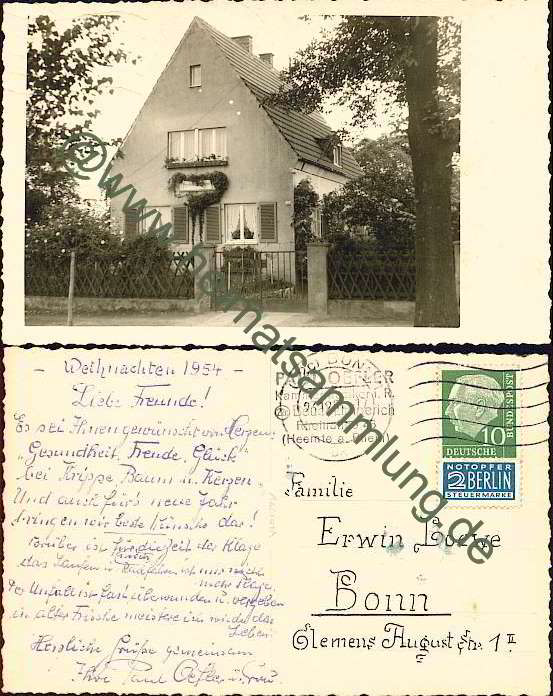 @www.heimatsammlung.de
- Weihnachten 1954 -
Liebe Freunde!
Es sei Ihnen gewünscht von Herzen:
"Gesundheit, Freude, Glück"
bei Krippe Baum u. Kerzen.
Und auch für's neue Jahr
bringen wir beste Wünsche dar!
ist für die Zeit der Klage
das Laufen u. ist nur noch
mehr Plage.
Der Unfall ist fast überwunden u. vergeben
in alter Frische meistere ich wieder das
Leben.
Herzliche Grüße gemeinsam
Ihre Paul Oefler u. Frau.
PAUL OEFLER
(Heemte a. Rhein)
DEUTSCHE
BUNDESPOST
10
NOTOPFER
2 BERLIN
STEUERMARKE
Familie
Erwin Loewe
Bonn
Clemens August Str. 1 II